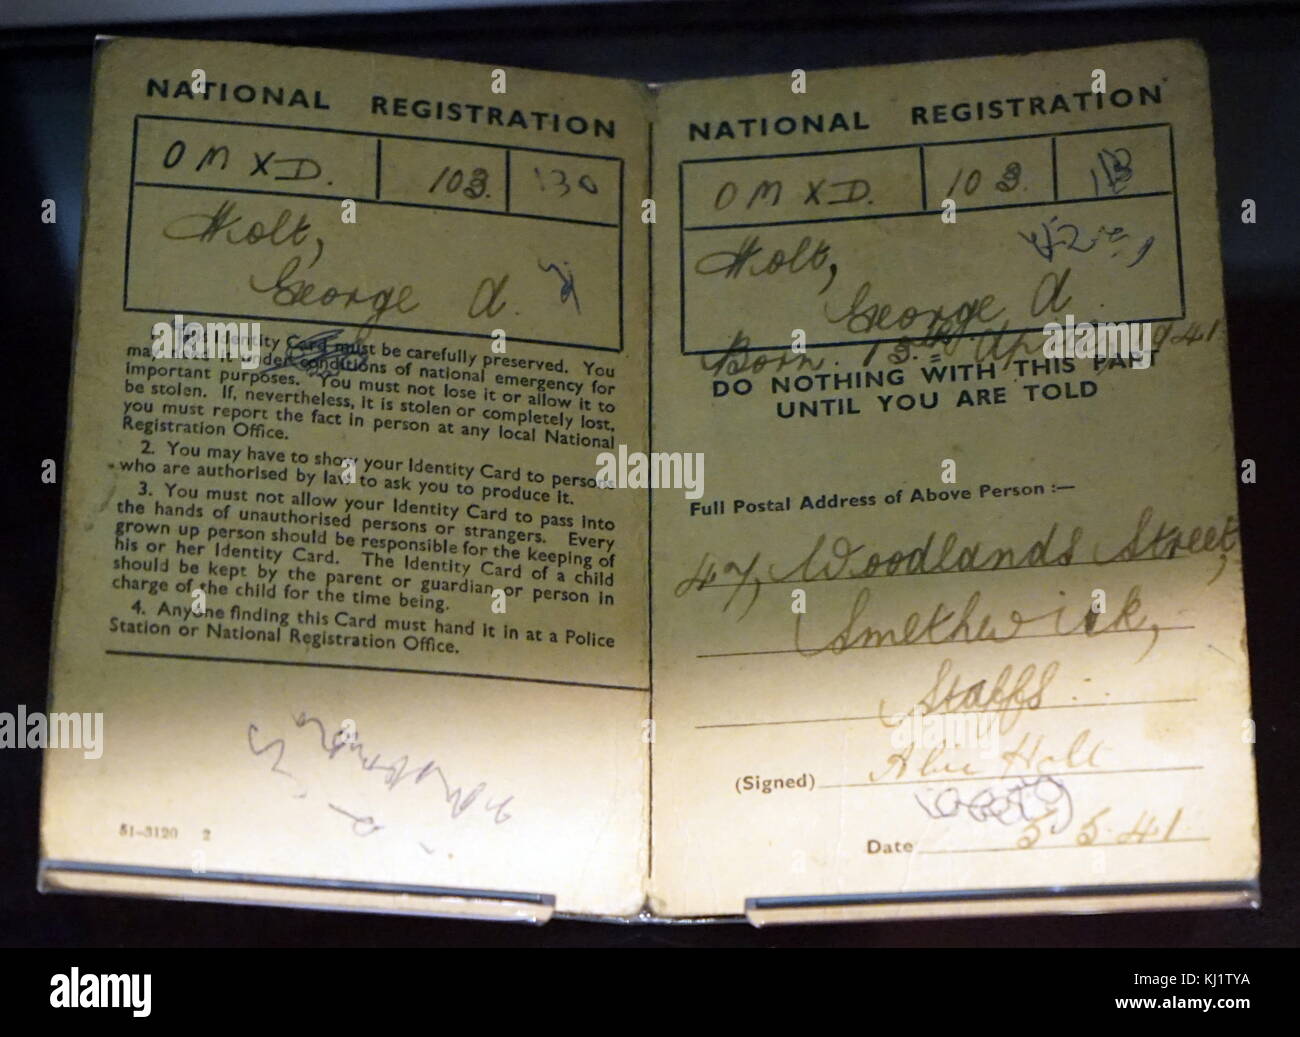 NATIONAL REGISTRATION
OMXD. 103. 130
Holt,
George A.
1. This Identity Card must be carefully preserved. You
may need it under conditions of national emergency for
important purposes. You must not lose it or allow it to
be stolen. If, nevertheless, it is stolen or completely lost,
you must report the fact in person at any local National
Registration Office.
2. You may have to show your Identity Card to persons
who are authorised by law to ask you to produce it.
3. You must not allow your Identity Card to pass into
the hands of unauthorised persons or strangers. Every
grown up person should be responsible for the keeping of
his or her Identity Card. The Identity Card of a child
should be kept by the parent or guardian or person in
charge of the child for the time being.
4. Anyone finding this Card must hand it in at a Police
Station or National Registration Office.
51-3120 2
NATIONAL REGISTRATION
OMXD. 103.
Holt,
George A.
Born. 15th April 1941
DO NOTHING WITH THIS PART
UNTIL YOU ARE TOLD
Full Postal Address of Above Person :—
47, Woodlands Street,
Smethwick,
Staffs.
(Signed) Holt
Date 5.5.41.
alamy
Image ID: KJ1TYA
www.alamy.com